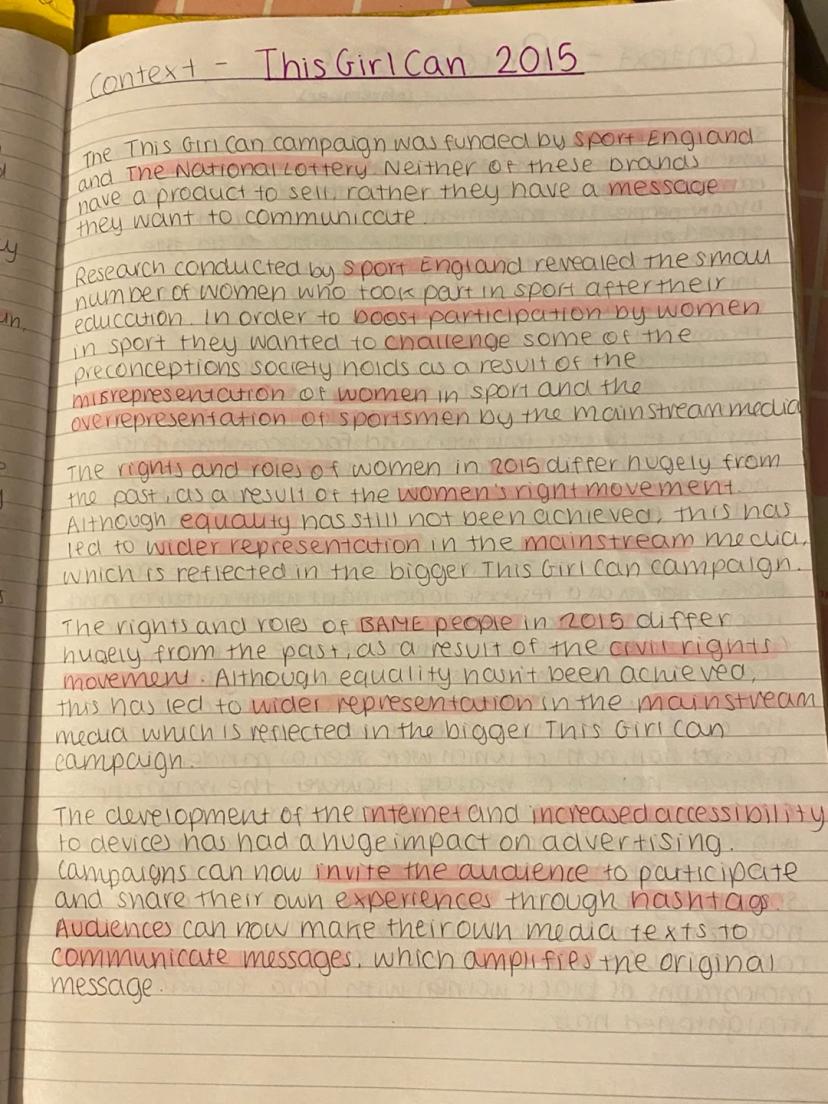 Context - This Girl Can 2015
The This Girl Can campaign was funded by Sport England
and The National Lottery. Neither of these brands
have a product to sell, rather they have a message
they want to communicate.
Research conducted by Sport England revealed the small
number of women who took part in sport after their
education. In order to boost participation by women
in sport they wanted to challenge some of the
preconceptions society holds as a result of the
misrepresentation of women in sport and the
overrepresentation of sportsmen by the mainstream media
The rights and roles of women in 2015 differ hugely from
the past, as a result of the women's right movement.
Although equality has still not been achieved, this has
led to wider representation in the mainstream media,
which is reflected in the bigger This Girl Can campaign.
The rights and roles of BAME people in 2015 differ
hugely from the past, as a result of the civil rights
movement. Although equality hasn't been achieved,
this has led to wider representation in the mainstream
media which is reflected in the bigger This Girl Can
campaign.
The development of the internet and increased accessibility
to devices has had a huge impact on advertising.
Campaigns can now invite the audience to participate
and share their own experiences through hashtags.
Audiences can now make their own media texts to
communicate messages, which amplifies the original
message.